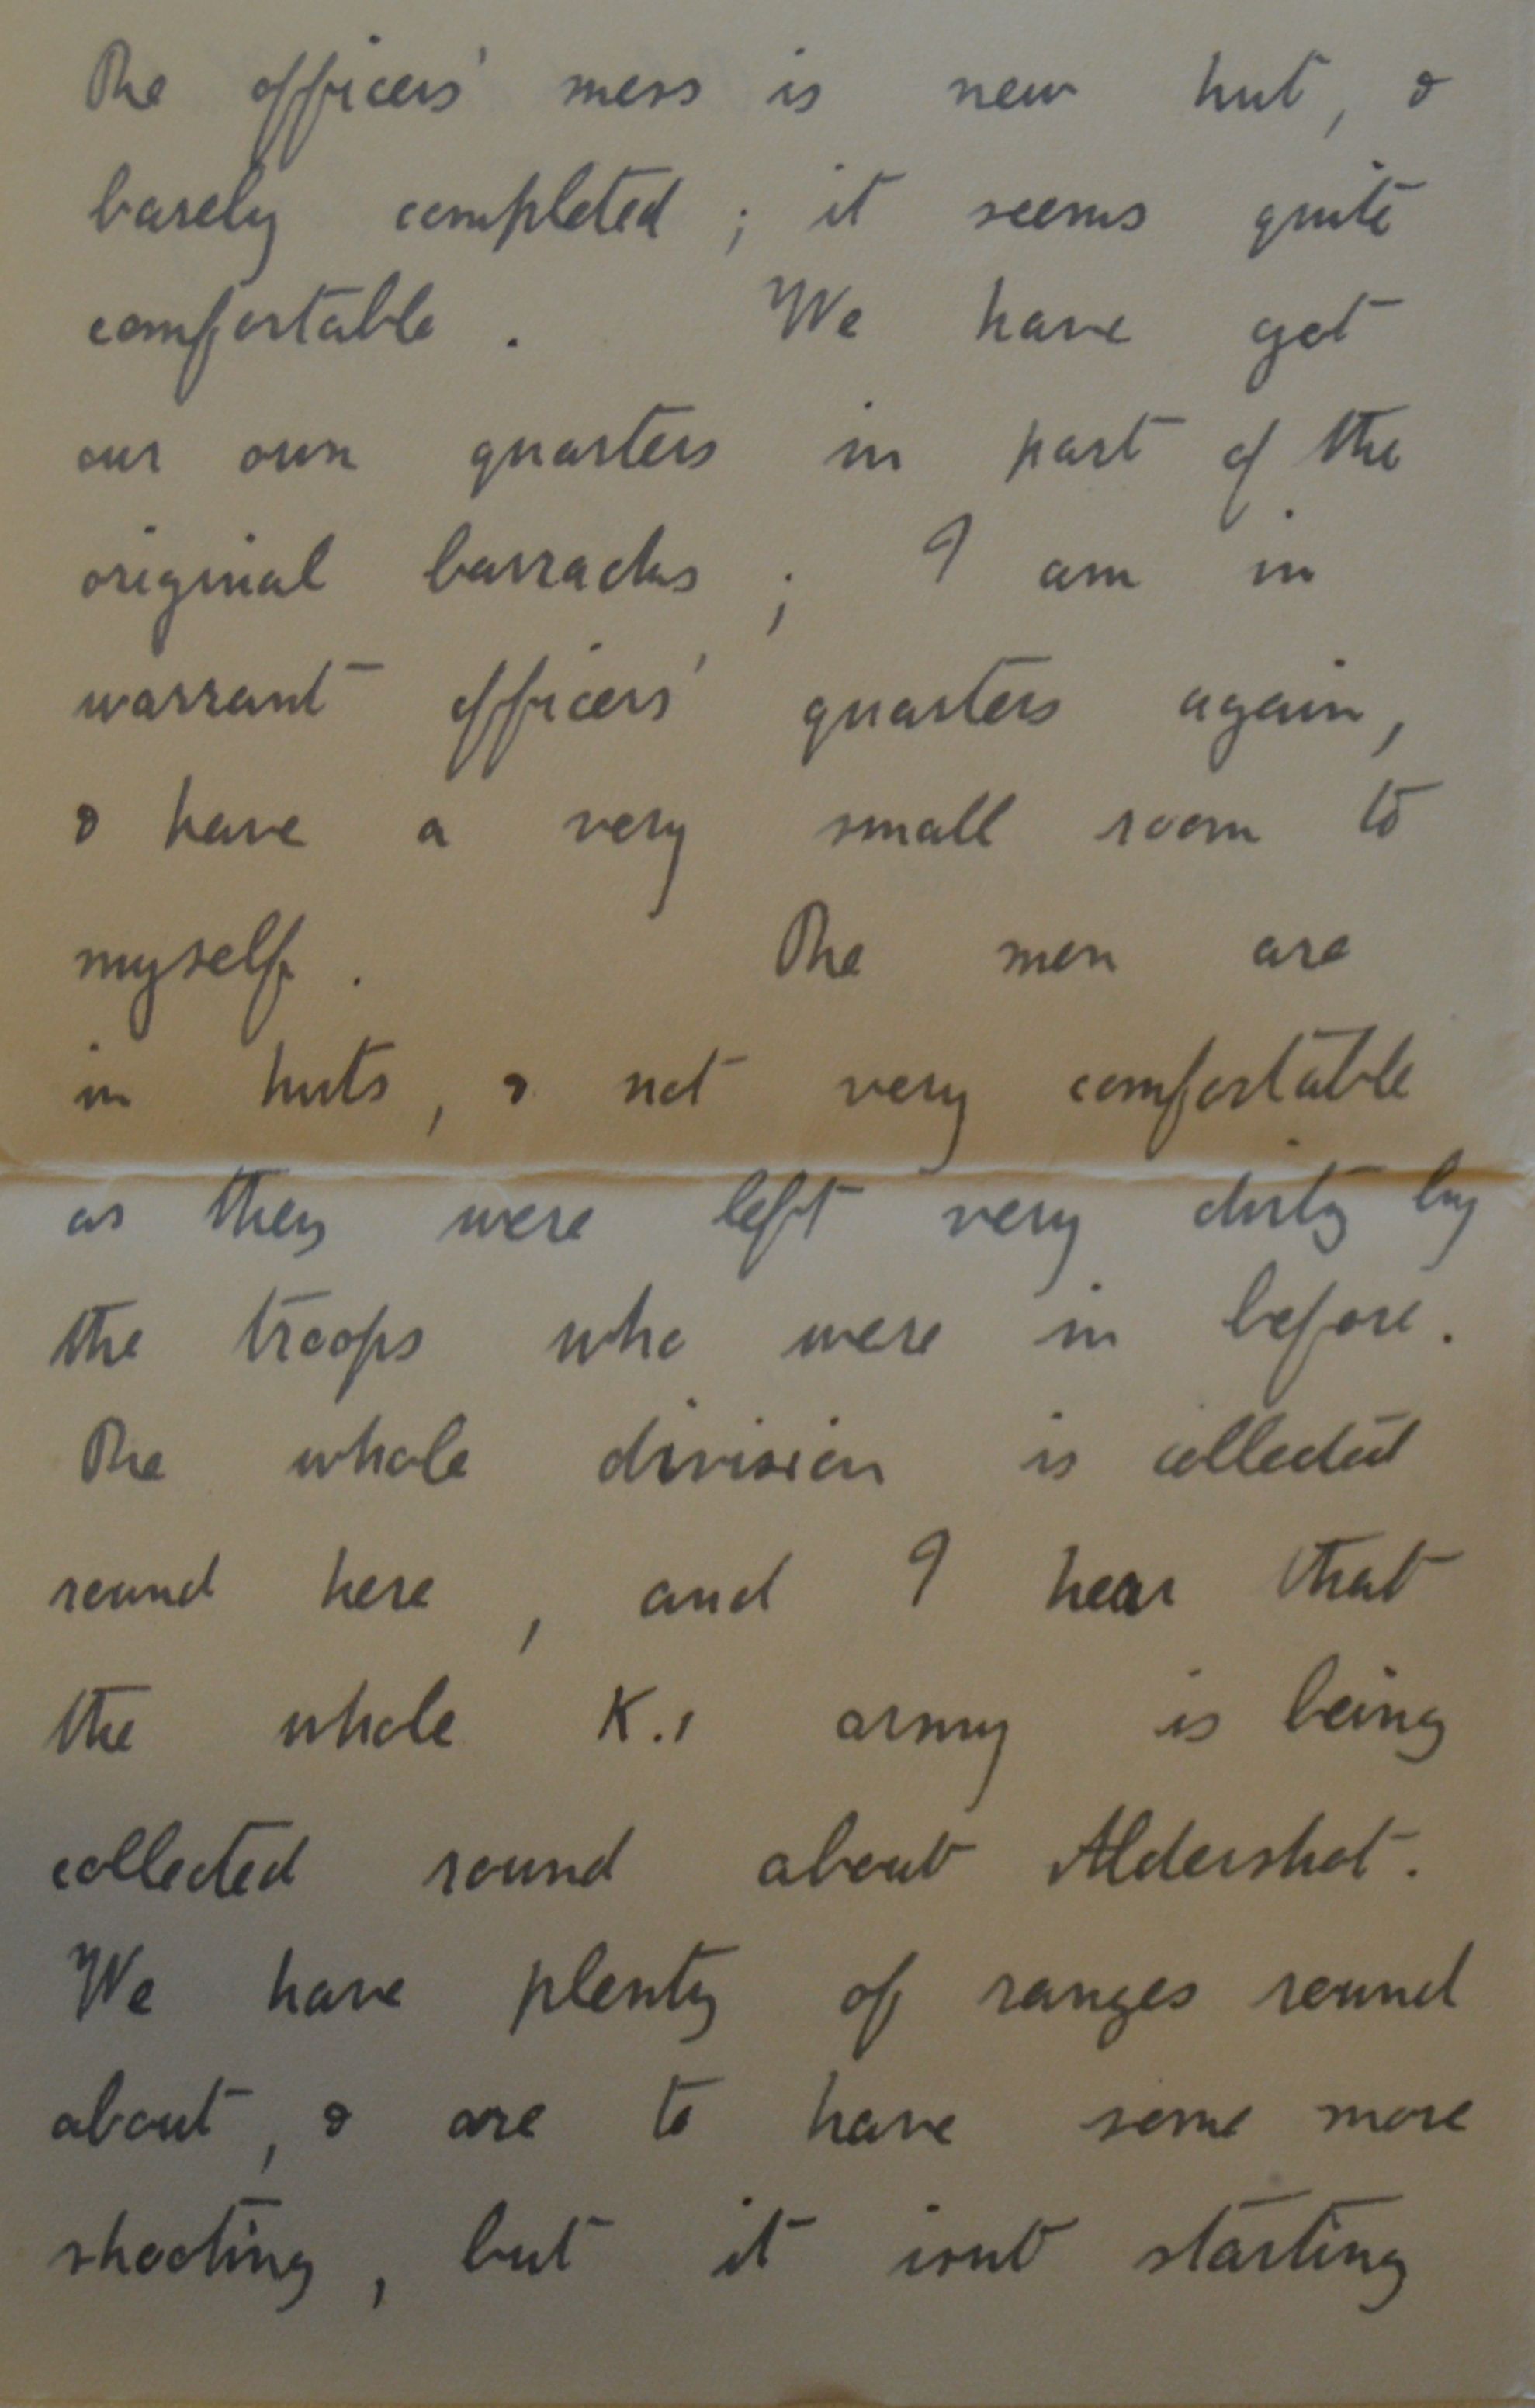 The officers' mess is new hut, &
barely completed; it seems quite
comfortable. We have got
our own quarters in part of the
original barracks; I am in
warrant officers' quarters again,
& have a very small room to
myself. The men are
in huts, & not very comfortable
as they were left very dirty by
the troops who were in before.
The whole division is collected
round here, and I hear that
the whole K.1 army is being
collected round about Aldershot.
We have plenty of ranges round
about, & are to have some more
shooting, but it isnt starting